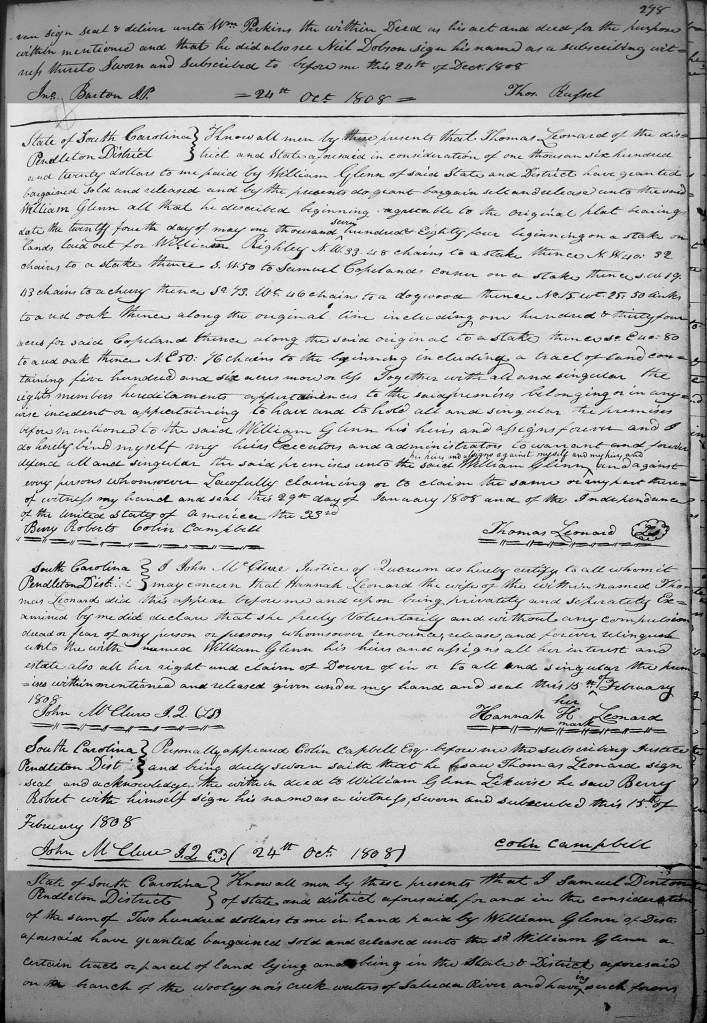 298
ran sign seal & deliver unto Wm. Perkins the within Deed as his act and deed for the purpose
within mentioned and that he did also see Neil Dobson sign his name as a subscribing wit-
ness thereto Sworn and Subscribed to before me this 24th of Dect. 1808
Jno. Barton JP. = 24th Oct. 1808 = Thos.
State of South Carolina } Know all men by these presents that Thomas Leonard of the dis-
Pendleton District } trict and State aforesaid in consideration of one thousand six hundred
and twenty dollars to me paid by William Glenn of said State and District have granted
bargained Sold and released and by the presents do grant bargain sell and release unto the said
William Glenn all that he described beginning agreeable to the original plat bearing
date the twenty four the day of may one thousand seven hundred & Eighty four beginning on a stake on
lands laid out for William Righley N.W. 33. 48 chains to a stake thence N.W. 40. 32
chains to a stake thence S.W. 50 to Samuel Copelands corner on a stake thence S.W. 19.
43 chains to a cherry thence So. 73. W. 5. 46 chains to a dogwood thence No. 15 Wt. 25. 50 links
to a red oak thence along the original line including one hundred & thirty four
acres for said Copeland thence along the said original to a stake thence SE 40. 80
to a red oak thence N.E. 50. 76 chains to the beginning including a tract of land con-
taining five hundred and six acres more or less Together with all and singular the
rights members hereditaments appurtainences to the said premises belonging or in any-
wise incident or appertaining to have and to hold all and singular the premises
before mentioned to the said William Glenn his heirs and assigns forever and I
do hereby bind myself my heirs Executors and administrators to warrant and forever
defend all and singular the said premises unto the said William Glenn his heirs and assigns against myself and my heirs and and against
every persons whomsoever Lawfully claiming or to claim the same or any part there-
of witness my hand and seal this 29th day of January 1808 and of the Independance
of the United States of america the 33rd
Berry Roberts Colin Campbell Thomas Leonard LS
South Carolina } I John McClure Justice of Quorum do hereby certify to all whom it
Pendleton Dist. } may concern that Hannah Leonard the wife of the within named Tho-
mas Leonard did this appear before me and upon being privately and seperately Ex-
amined by me did declare that she freely Voluntarily and without any compulsion
dread or fear of any person or persons whomsoever renounce, release, and forever relinquish
unto the with named William Glenn his heirs and assigns all her interest and
estate also all her right and claim of Dower of in or to all and singular the prem-
ises within mentioned and released given under my hand and seal this 15th of February
1808
John McClure J.Q. LS Hannah her H mark Leonard
South Carolina } Personally appeared Colin Capbell Esq. before me the subscribing Justice
Pendleton Dist } and being duly sworn saith that he saw Thomas Leonard sign
seal and acknowledge the within deed to William Glenn Likewise he saw Berry
Robert with himself sign his name as a witness, sworn and subscribed this 15th of
February 1808
John McClure J.Q. (24th Oct. 1808) Colin Campbell
State of South Carolina } Know all men by these presents that I Samuel Dinton
Pendleton District } of State and district aforesaid for and in the consideration
of the sum of Two hundred dollars to me in hand paid by William Glenn of Dist.
aforesaid have granted bargained sold and released unto the sd. William Glenn a
certain tract or parcel of land lying and being in the State & District aforesaid
on a branch of the wooley nois creek waters of Saluda River and having such forms